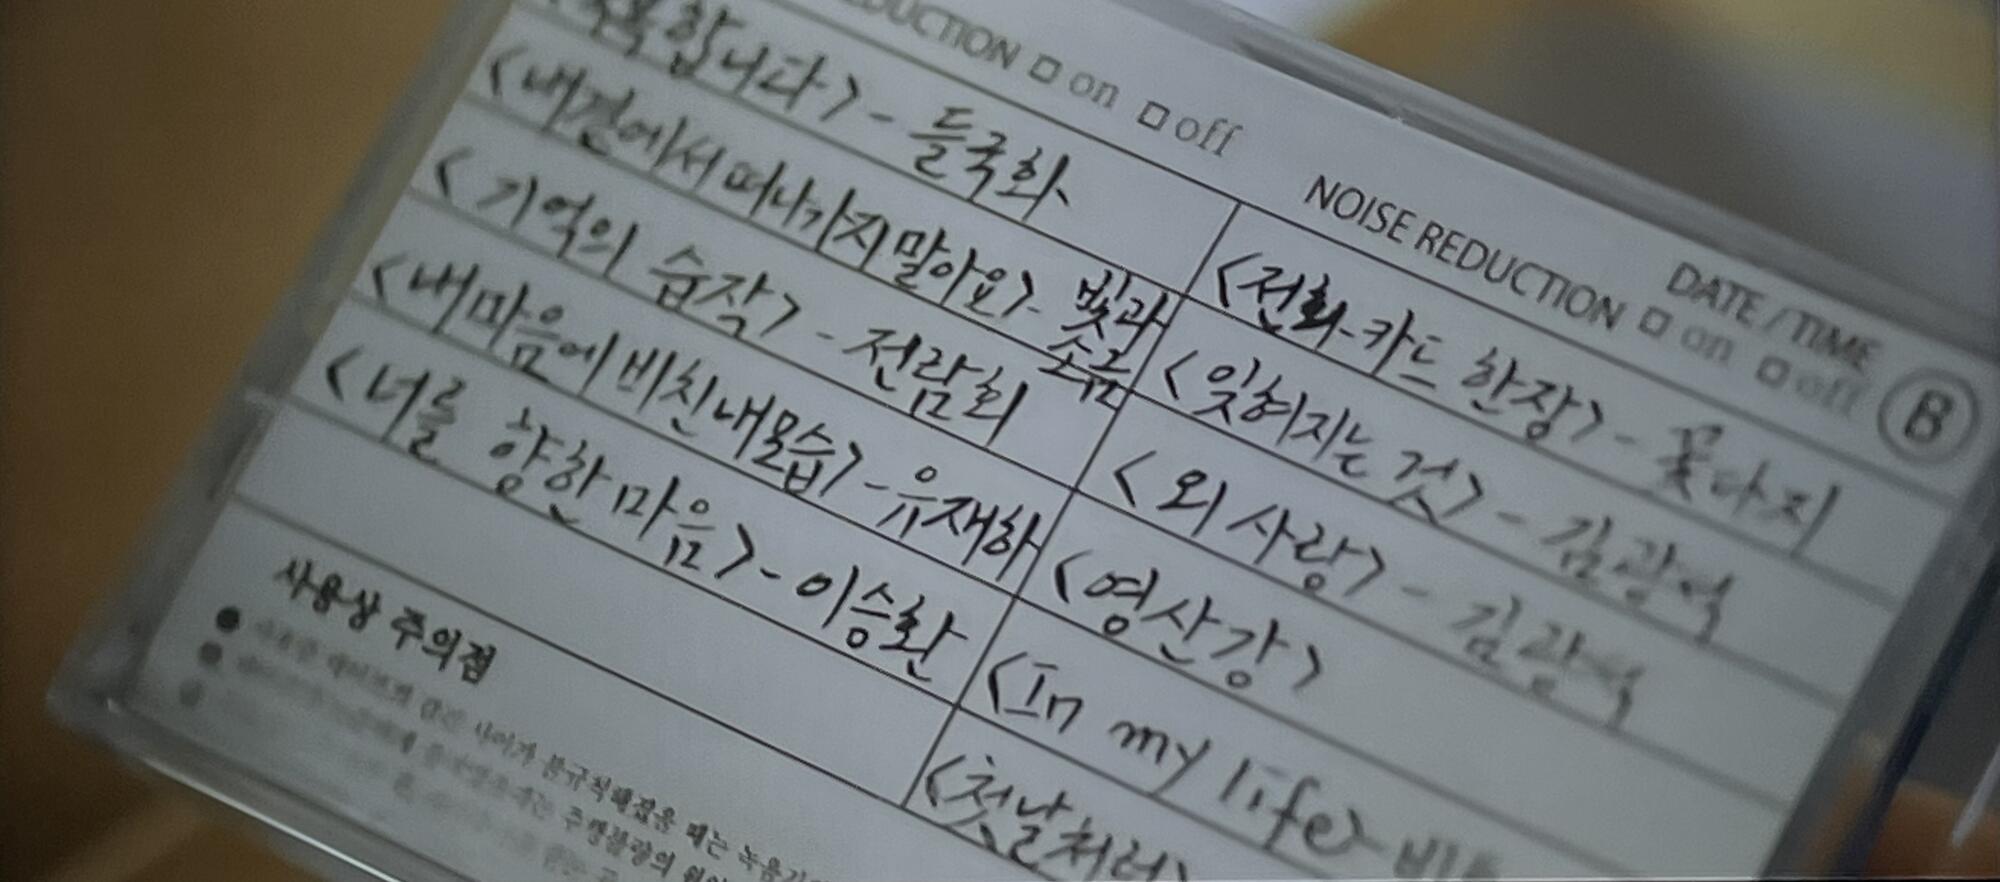 REDUCTION □ on □ off
합니다> - 들국화
<내곁에서 떠나가지 말아요> - 빛과
소금
<기억의 습작> - 전람회
<내마음에 비친 내모습> - 유재하
<너를 향한 마음> - 이승환
사용상 주의점
DATE / TIME
NOISE REDUCTION □ on □ off
B
<전화카드 한장> - 꽃다지
<잊혀지는 것> - 김광석
<외사랑> - 김광석
<영산강>
<In my life> -
<첫날처럼>